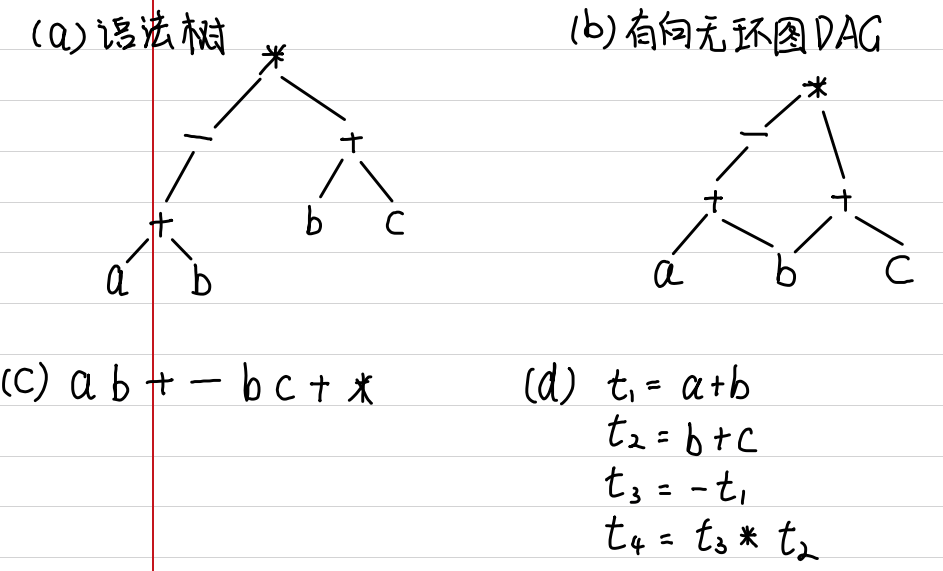 (a) 语法树
*
- +
+ b c
a b
(b) 有向无环图 DAG
*
-
+ +
a b c
(c) a b + - b c + *
(d) t₁ = a+b
t₂ = b+c
t₃ = -t₁
t₄ = t₃ * t₂